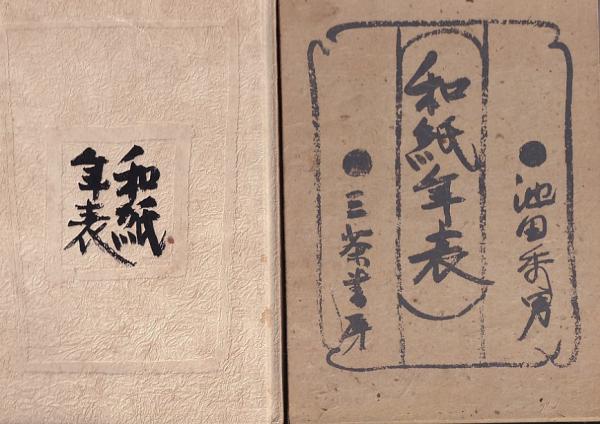 和紙
年表
●池田秀男
和紙年表
●三茶書房